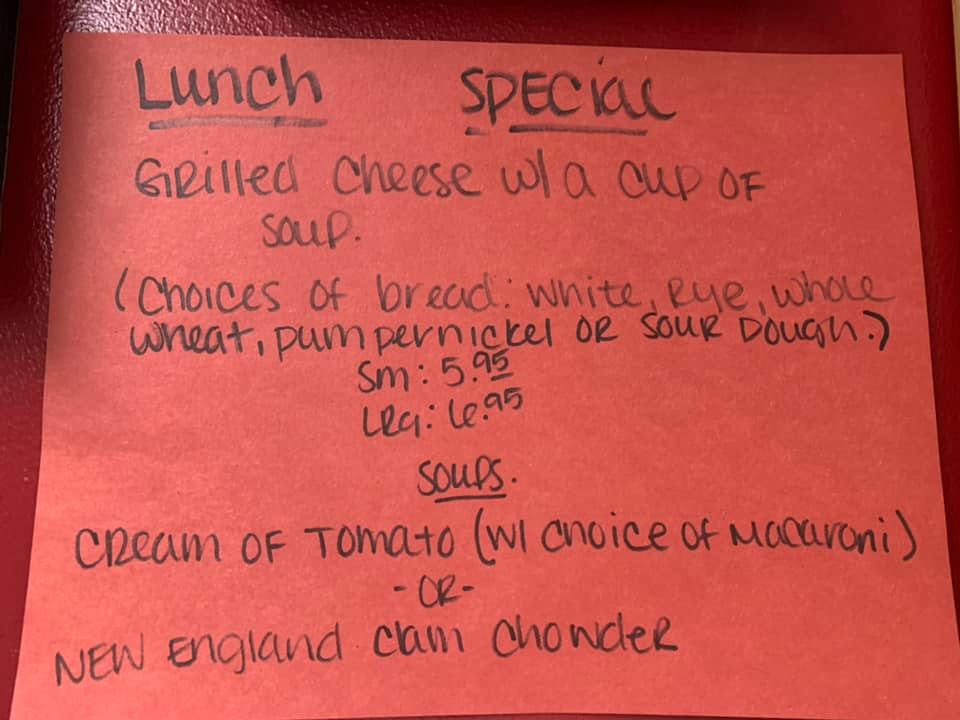 Lunch SPECIAL
GRilled Cheese w/ a cup OF
soup.
(Choices of bread: white, Rye, whole
wheat, pumpernickel OR SOUR DOugh.)
Sm: 5.95
LRG: 6.95
SOUPS.
CReam OF TOMATO (w/ choice of Macaroni)
-OR-
NEW England Clam ChowdeR